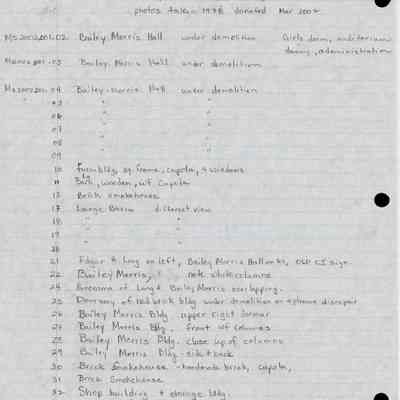 photos taken 1978 donated Mar 2002
MS2002.001.02 Bailey Morris Hall under demolition Girls dorm, auditorium
dining, administration
MS2002.001.03 Bailey Morris Hall under demolition
MS2002.001.04 Bailey-Morris Hall under demolition
" 05 " "
06 " "
07 " "
08 " "
09
10 Farm bldg, sq frame, cupola, 9 windows
11 Barn, wooden, w/ cupola
12 Brick smokehouse
17 Large Barn different view
18 " "
19 " "
20 "
21 Edgar A. Long on left, Bailey Morris Hall on Rt, Old CI sign
22 Bailey Morris, note white columns
24 Long & Bailey Morris overlapping.
25 Doorway of red brick bldg under demolition or extreme disrepair
26 Bailey Morris Bldg upper right
27 Bailey Morris Bldg. front w/ columns
28 Bailey Morris Bldg. close up of columns
29 Bailey Morris Bldg - side & back
30 Brick Smokehouse - handmade brick, cupola,
31 Brick Smokehouse
32 Shop building & storage bldg.